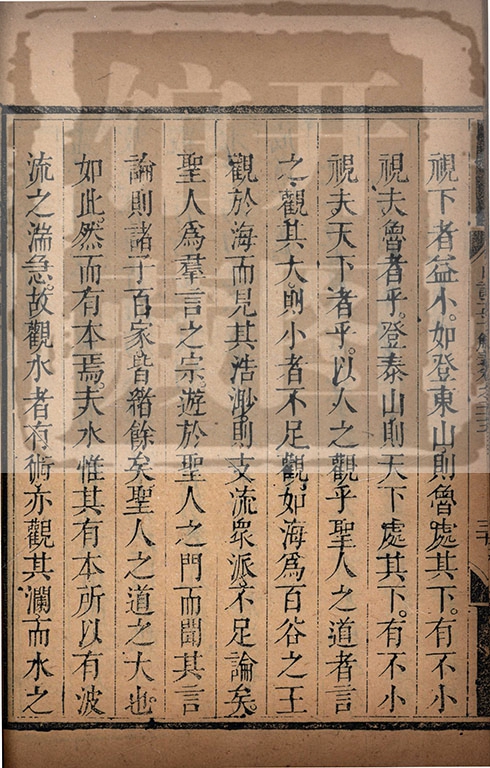 視下者益小。如登東山。則魯處其下。有不小
視夫魯者乎。登泰山則天下處其下。有不小
視夫天下者乎。以人之觀乎聖人之道者言
之。觀其大。則小者不足觀。如海為百谷之王
觀於海而見其浩渺。則支流眾派。不足論矣。
聖人為羣言之宗。遊於聖人之門而聞其言
論。則諸子百家。皆緒餘矣。聖人之道之大也
如此。然而有本焉。夫水惟其有本。所以有波
流之湍急。故觀水者有術。亦觀其瀾。而水之